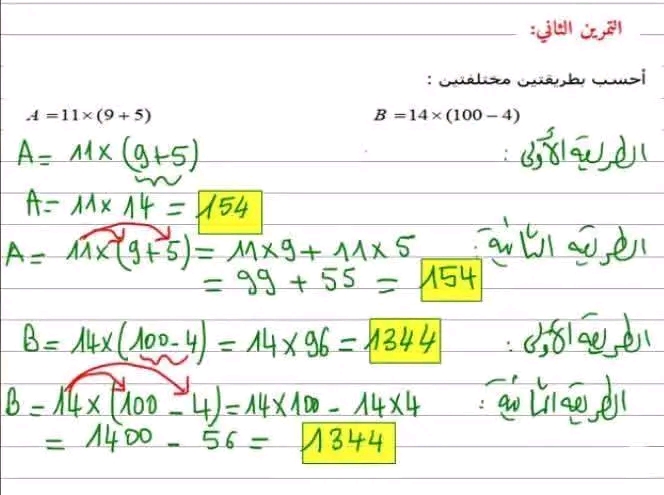 التمرين الثاني:
أحسب بطريقتين مختلفتين :
A = 11×(9 + 5) B = 14×(100 − 4)
A = 11×(9+5) الطريقة الأولى :
A = 11×14 = 154
A = 11×(9+5) = 11×9 + 11×5 الطريقة الثانية :
= 99 + 55 = 154
B = 14×(100-4) = 14×96 = 1344 الطريقة الأولى :
B = 14×(100 - 4) = 14×100 - 14×4 الطريقة الثانية :
= 1400 - 56 = 1344